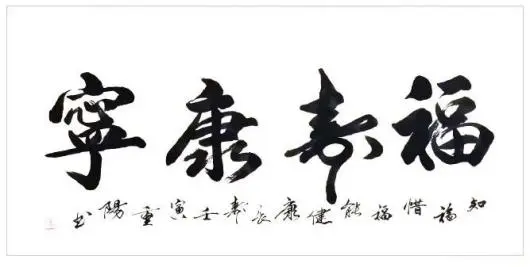 福寿康寧
知福惜福能健康长寿壬寅重陽书